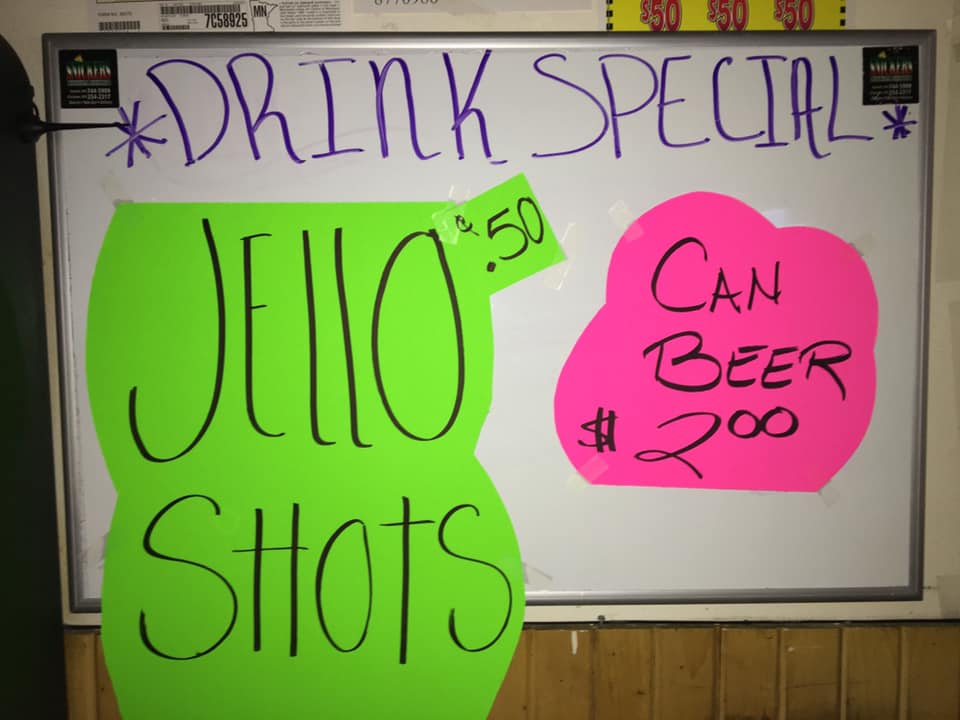 7C58925
MN
$50 $50 $50
*DRINK SPECIAL*
JELLO
¢.50
SHOTS
CAN
BEER
$2.00